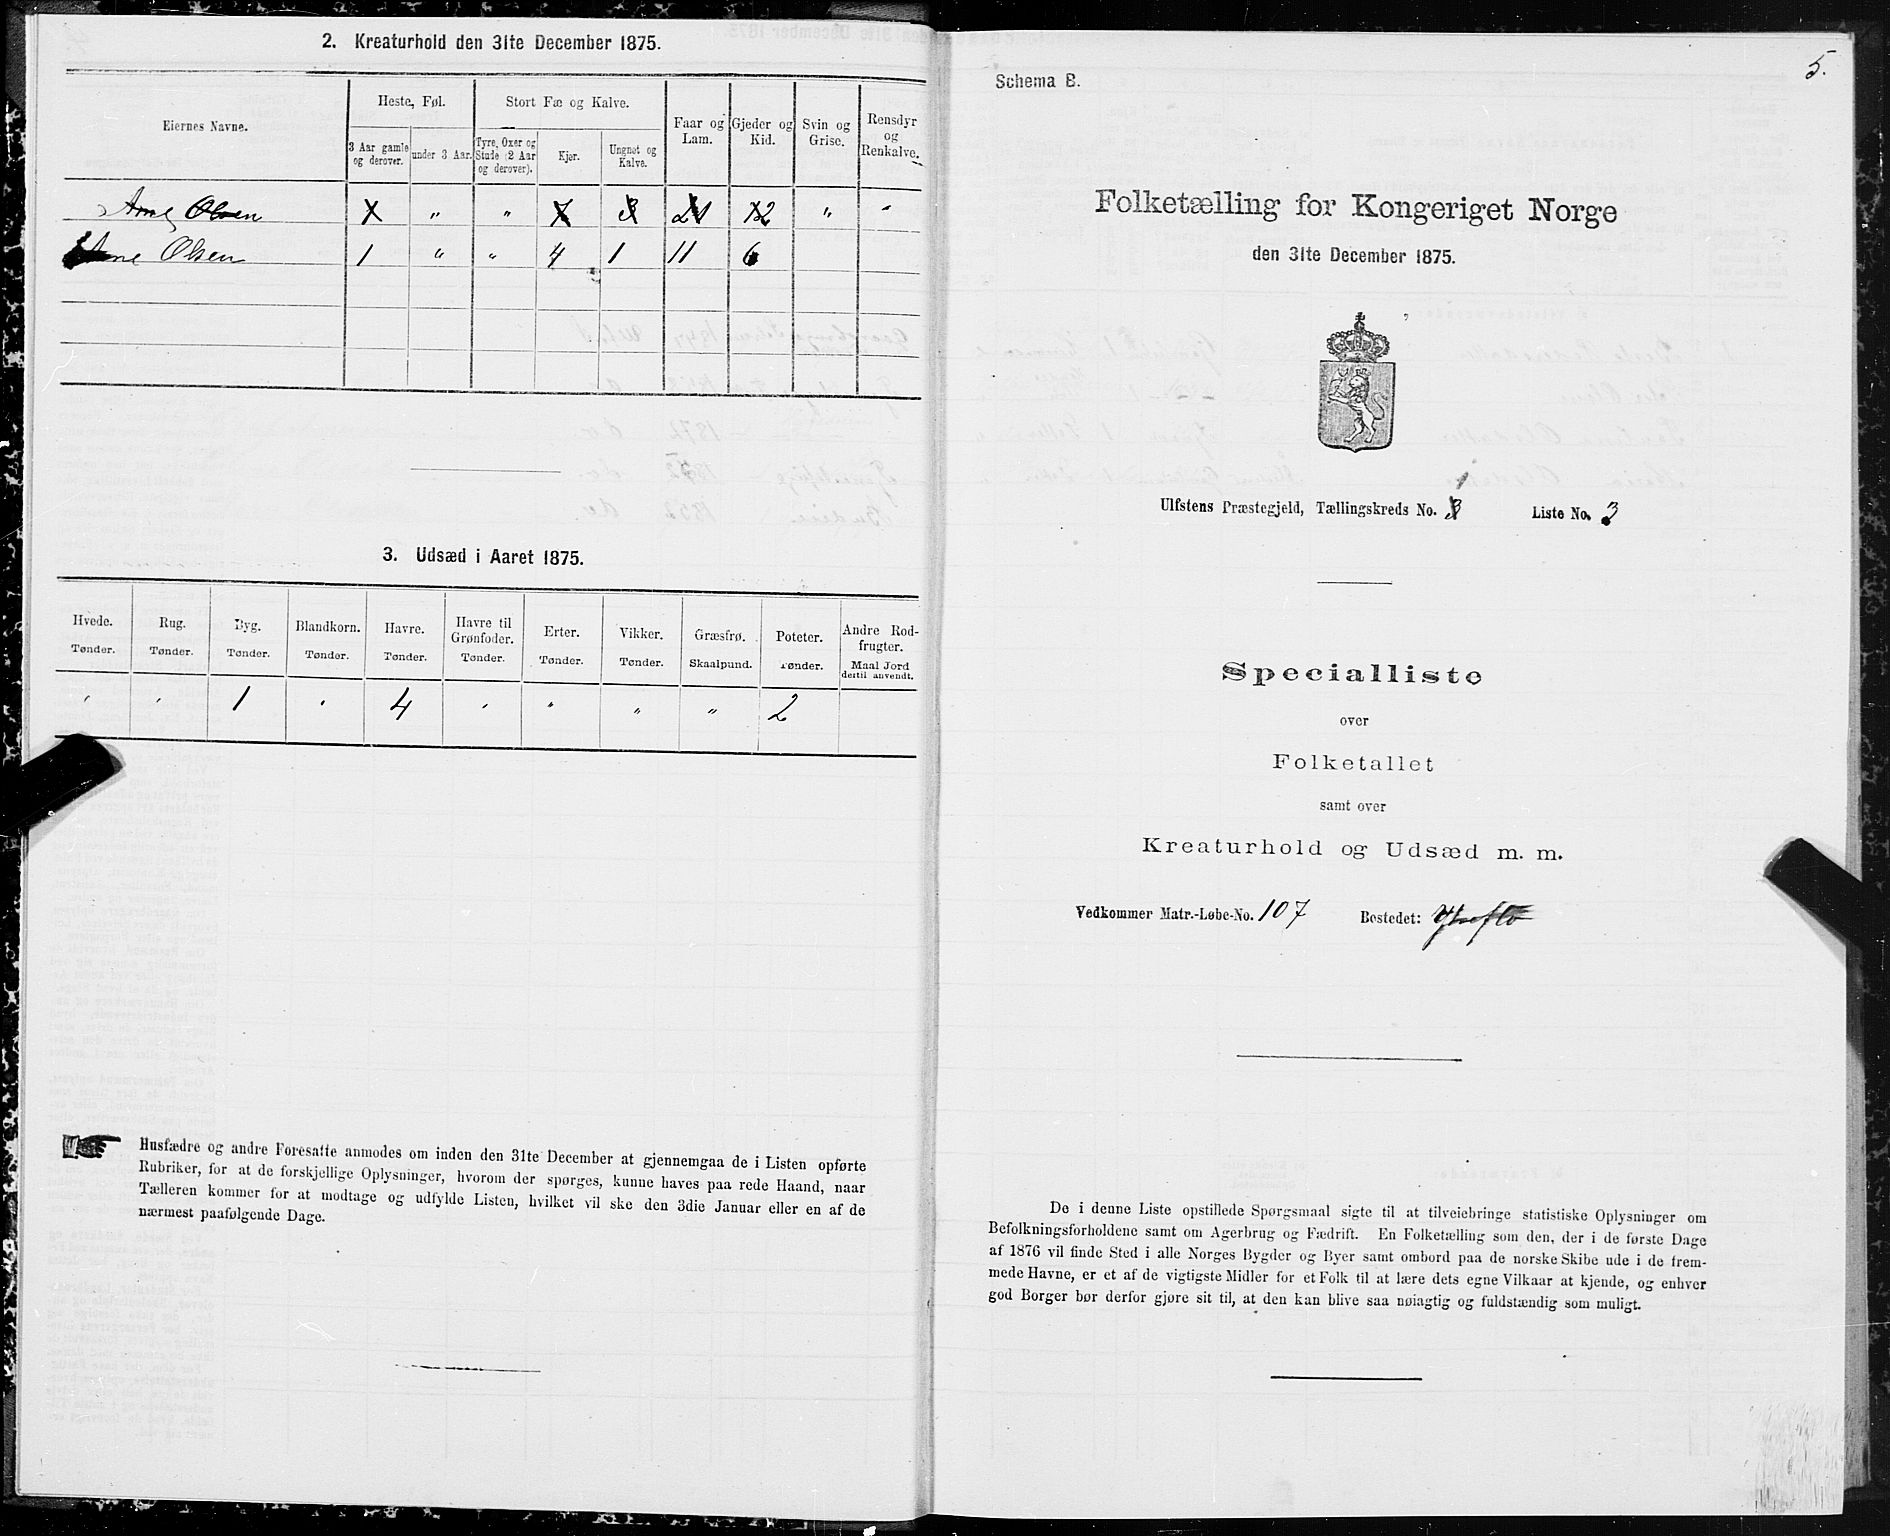 2. Kreaturhold den 31te December 1875.
Eiernes Navne.
Heste, Føl.
Stort Fæ og Kalve.
Faar og Lam.
Gjeder og Kid.
Svin og Grise.
Rensdyr og Renkalve.
3 Aar gamle og derover.
under 3 Aar.
Tyre, Oxer og Stude (2 Aar og derover).
Kjør.
Ungnøt og Kalve.
Arne Olsen 1 " " 7 3 21 12 " "
Arne Olsen 1 " " 4 1 11 6
3. Udsæd i Aaret 1875.
Hvede. Rug. Byg. Blandkorn. Havre. Havre til Grønfoder. Erter. Vikker. Græsfrø. Poteter. Andre Rodfrugter.
Tønder. Tønder. Tønder. Tønder. Tønder. Tønder. Tønder. Tønder. Skaalpund. Tønder. Maal Jord dertil anvendt.
" " 1 " 4 " " " " 2
Husfædre og andre Foresatte anmodes om inden den 31te December at gjennemgaa de i Listen opførte
Rubriker, for at de forskjellige Oplysninger, hvorom der spørges, kunne haves paa rede Haand, naar
Tælleren kommer for at modtage og udfylde Listen, hvilket vil ske den 3die Januar eller en af de
nærmest paafølgende Dage.
5.
Schema B.
Folketælling for Kongeriget Norge
den 31te December 1875.
1
Ulfstens Præstegjeld, Tællingskreds No. 3 Liste No. 3
Specialliste
over
Folketallet
samt over
Kreaturhold og Udsæd m. m.
Vedkommer Matr.-Løbe-No. 107 Bostedet: Ytreflo
De i denne Liste opstillede Spørgsmaal sigte til at tilveiebringe statistiske Oplysninger om
Befolkningsforholdene samt om Agerbrug og Fædrift. En Folketælling som den, der i de første Dage
af 1876 vil finde Sted i alle Norges Bygder og Byer samt ombord paa de norske Skibe ude i de frem-
mede Havne, er et af de vigtigste Midler for et Folk til at lære dets egne Vilkaar at kjende, og enhver
god Borger bør derfor gjøre sit til, at den kan blive saa nøiagtig og fuldstændig som muligt.